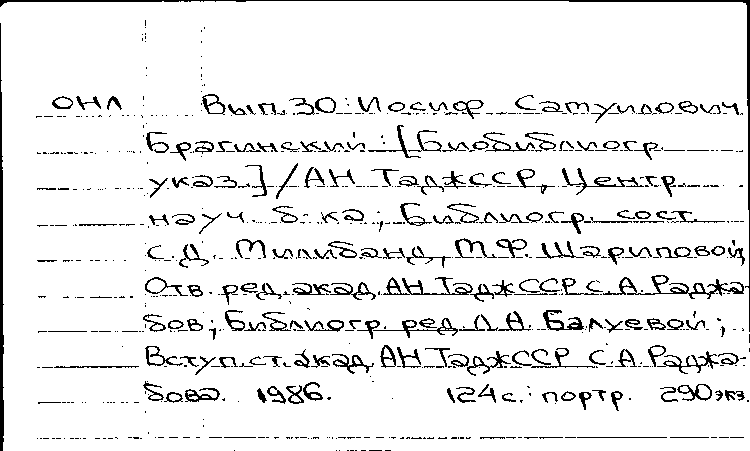 ОНЛ Вып. 30: Иосиф Самуилович
Брагинский: [Биобиблиогр.
указ.] / АН ТаджССР, Центр.
науч. б-ка; Библиогр. сост.
С.Д. Милибанд, М.Ф. Шариповой,
Отв. ред. акад. АН ТаджССР С.А. Раджа-
бов; Библиогр. ред. Л.А. Балуевой;
Вступ. ст. акад. АН ТаджССР С.А. Раджа-
бова. 1986. 124 с.: портр. 290 экз.